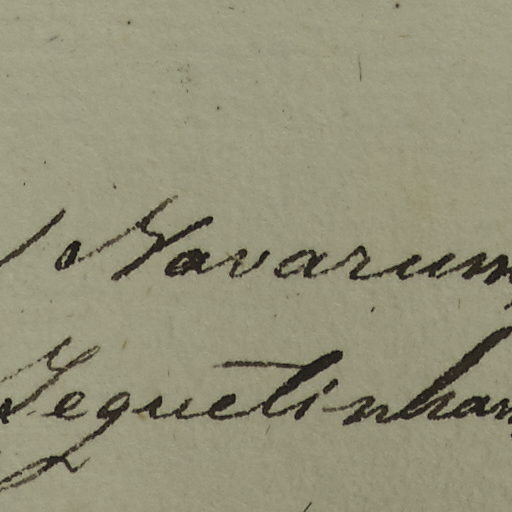 Navarum
Jequetinhan